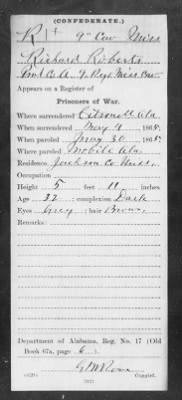 (CONFEDERATE.)
R 9" Cav Miss
Richard Roberts
Appears on a Register of
Prisoners of War.
Where surrendered Citronelle Ala
When surrendered May 4 186 .
When paroled May 30 1865.
Where paroled Mobile Ala.
Residence Jackson Co Miss.
Occupation
Height 5 feet 11 inches
Age 32 ; complexion Dark
Eyes Grey ; hair Brown
Remarks:
Department of Alabama, Reg. No. 17 (Old
Book 67a, page 6
Copyist.